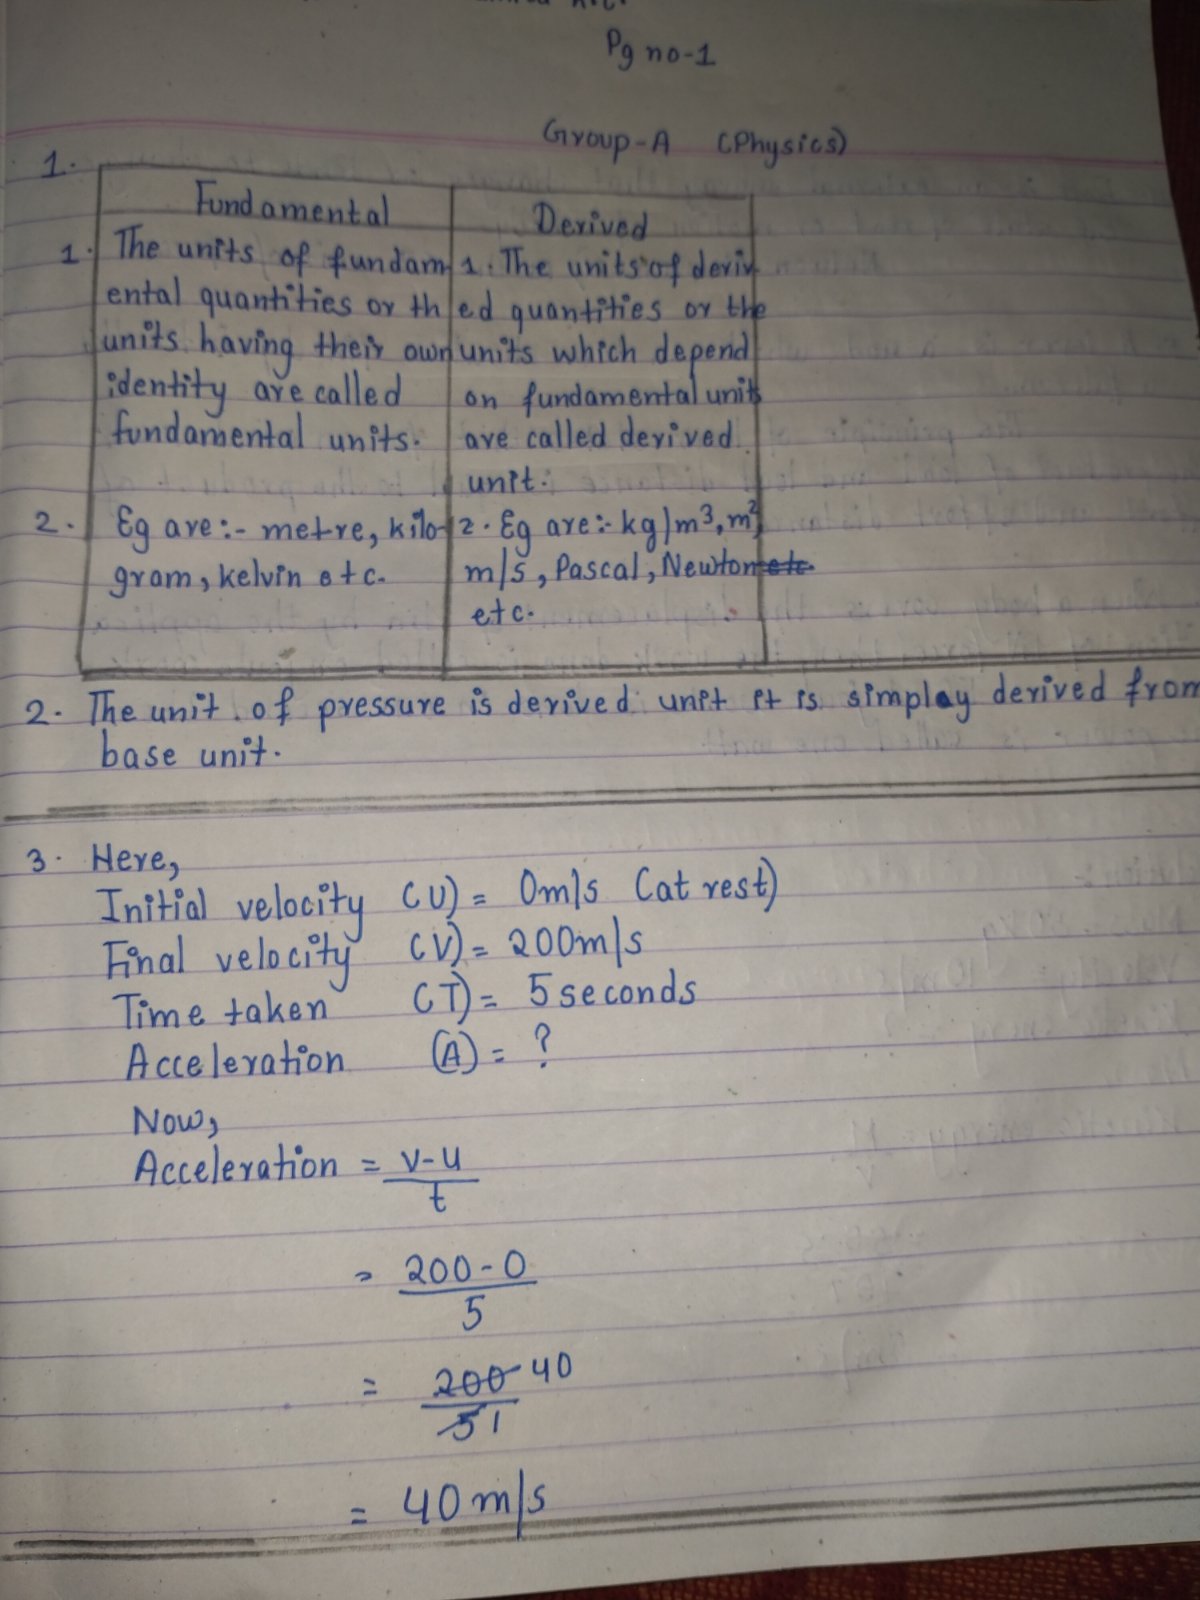 Pg no-1
Group-A (Physics)
1.
Fundamental
1. The units of fundam
ental quantities or th
units having their own
identity are called
fundamental units.
2. Eg are:- metre, kilo-
gram, kelvin etc.
Derived
1. The units of deriv
ed quantities or the
units which depend
on fundamental unit
are called derived
unit.
2. Eg are:- kg/m³, m²,
m/s, Pascal, Newton etc.
etc.
2. The unit of pressure is derived unit it is simplay derived from
base unit.
3. Here,
Initial velocity (U) = 0m/s (at rest)
Final velocity (V) = 200m/s
Time taken (T) = 5 seconds
Acceleration (A) = ?
Now,
Acceleration = v-u
t
= 200-0
5
= 200 40
5 1
= 40 m/s